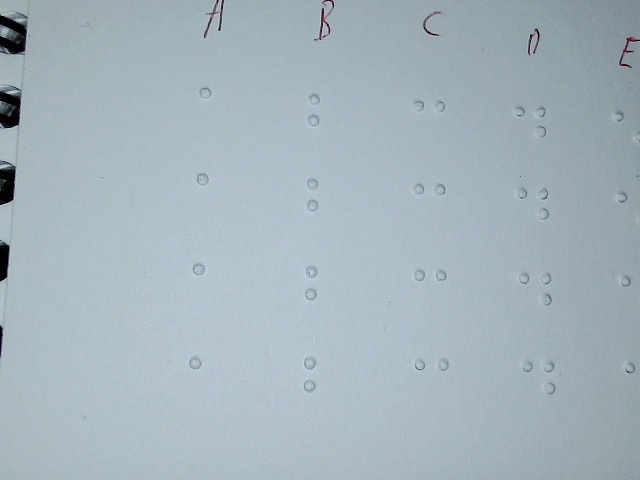 A B C D E
⠁ ⠃ ⠉ ⠙ ⠑
⠁ ⠃ ⠉ ⠙ ⠑
⠁ ⠃ ⠉ ⠙
⠁ ⠃ ⠉ ⠙